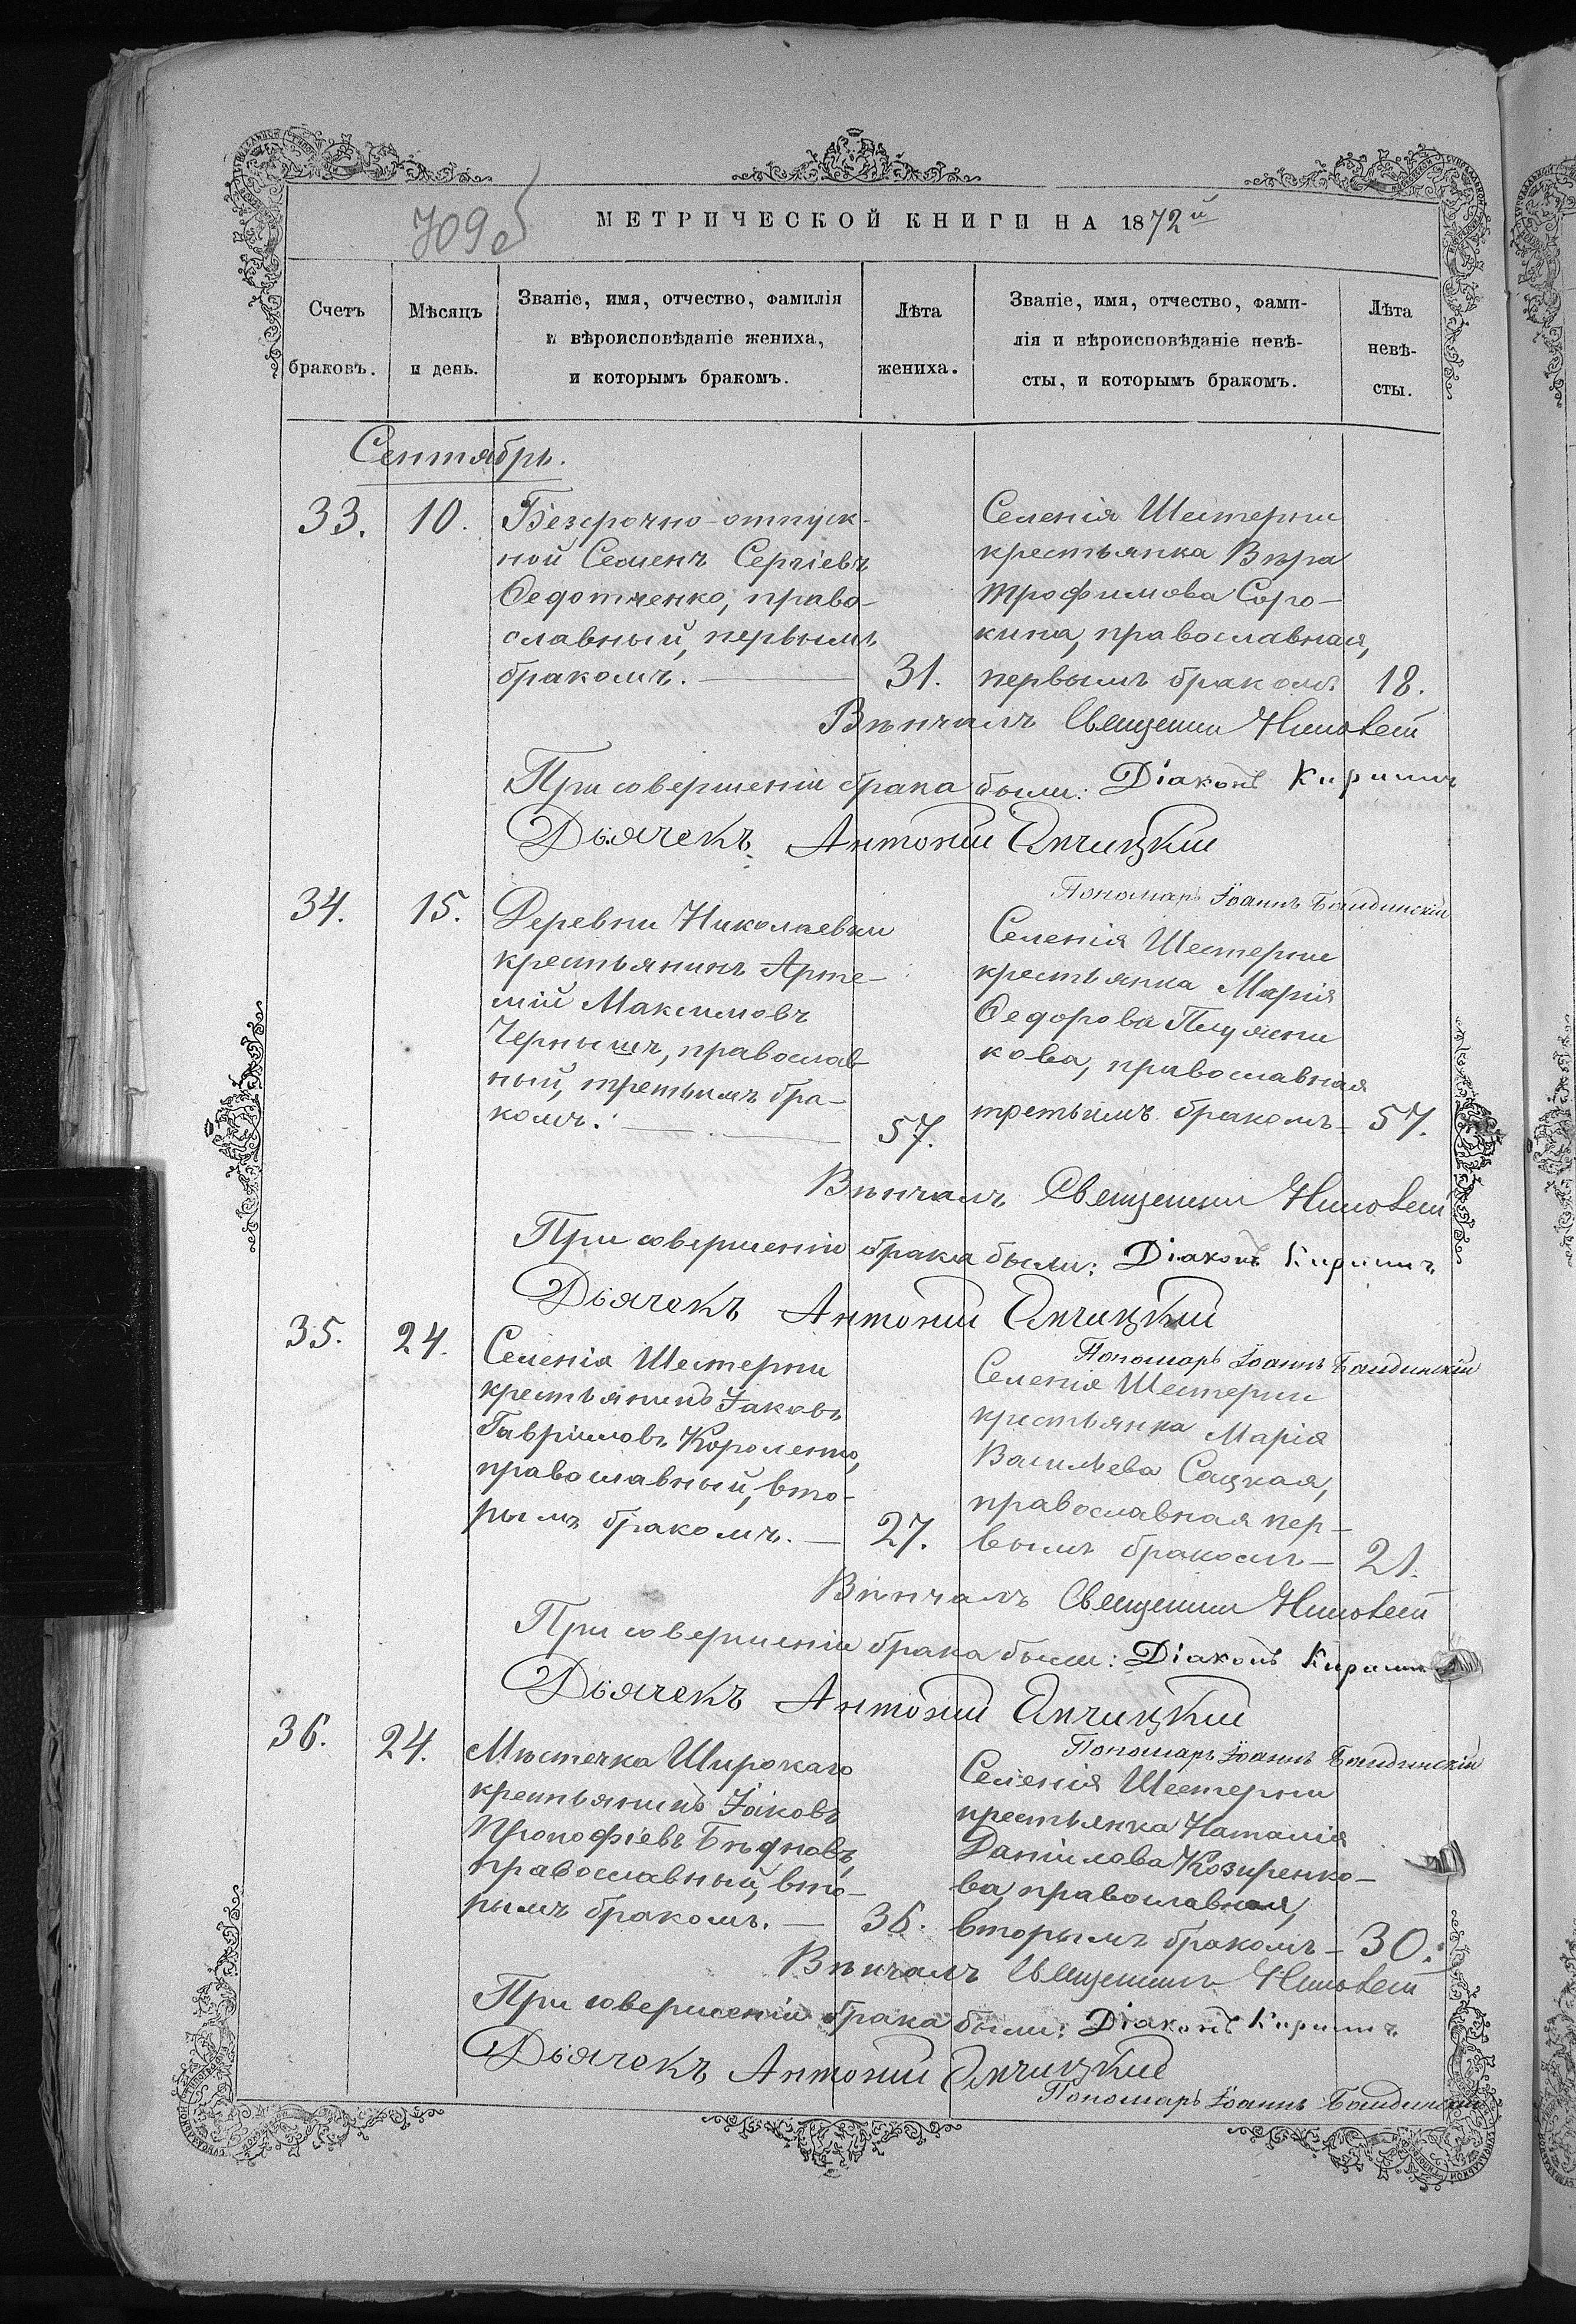 709об
МЕТРИЧЕСКОЙ КНИГИ НА 1872й
Счетъ браковъ.
Мѣсяцъ и день.
Званіе, имя, отчество, фамилія
и вѣроисповѣданіе жениха,
и которымъ бракомъ.
Лѣта жениха.
Званіе, имя, отчество, фами-
лія и вѣроисповѣданіе невѣ-
сты, и которымъ бракомъ.
Лѣта невѣ-
сты.
Сентябрь.
33. 10.
Безсрочно-отпуск-
ной Семенъ Сергіевъ
Ѳедотченко, право-
славный, первымъ
бракомъ. — 31.
Селенія Шестерни
крестьянка Вѣра
Трофимова Соро-
кина, православная,
первымъ бракомъ. 18.
Вѣнчалъ Священник
При совершеніи брака были: Діаконъ
Дьячекъ Антоній
Пономарь Іоаннъ
34. 15.
Деревни Николаевки
крестьянинъ Арте-
мій Максимовъ
Чернышъ, православ-
ный, третьимъ бра-
комъ. — 57.
Селенія Шестерни
крестьянка Марія
Ѳедорова
кова, православная
третьимъ бракомъ — 57.
Вѣнчалъ Священник
При совершеніи брака были: Діаконъ
Дьячекъ Антоній
Пономарь Іоаннъ
35. 24.
Селенія Шестерни
крестьянинъ Іаковъ
Гавріиловъ Короленко,
православный, вто-
рымъ бракомъ. — 27.
Селенія Шестерни
крестьянка Марія
Васильева Сацкая,
православная пер-
вымъ бракомъ — 21.
Вѣнчалъ Священник
При совершеніи брака были: Діаконъ
Дьячекъ Антоній
Пономарь Іоаннъ
36. 24.
Мѣстечка Широкаго
крестьянинъ Іаковъ
Прокофіевъ Бѣдновъ,
православный, вто-
рымъ бракомъ. — 36.
Селенія Шестерни
крестьянка Наталія
Даніилова Козиренко-
ва, православная,
вторымъ бракомъ — 30.
Вѣнчалъ Священникъ
При совершеніи брака были: Діаконъ
Дьячекъ Антоній
Пономарь Іоаннъ